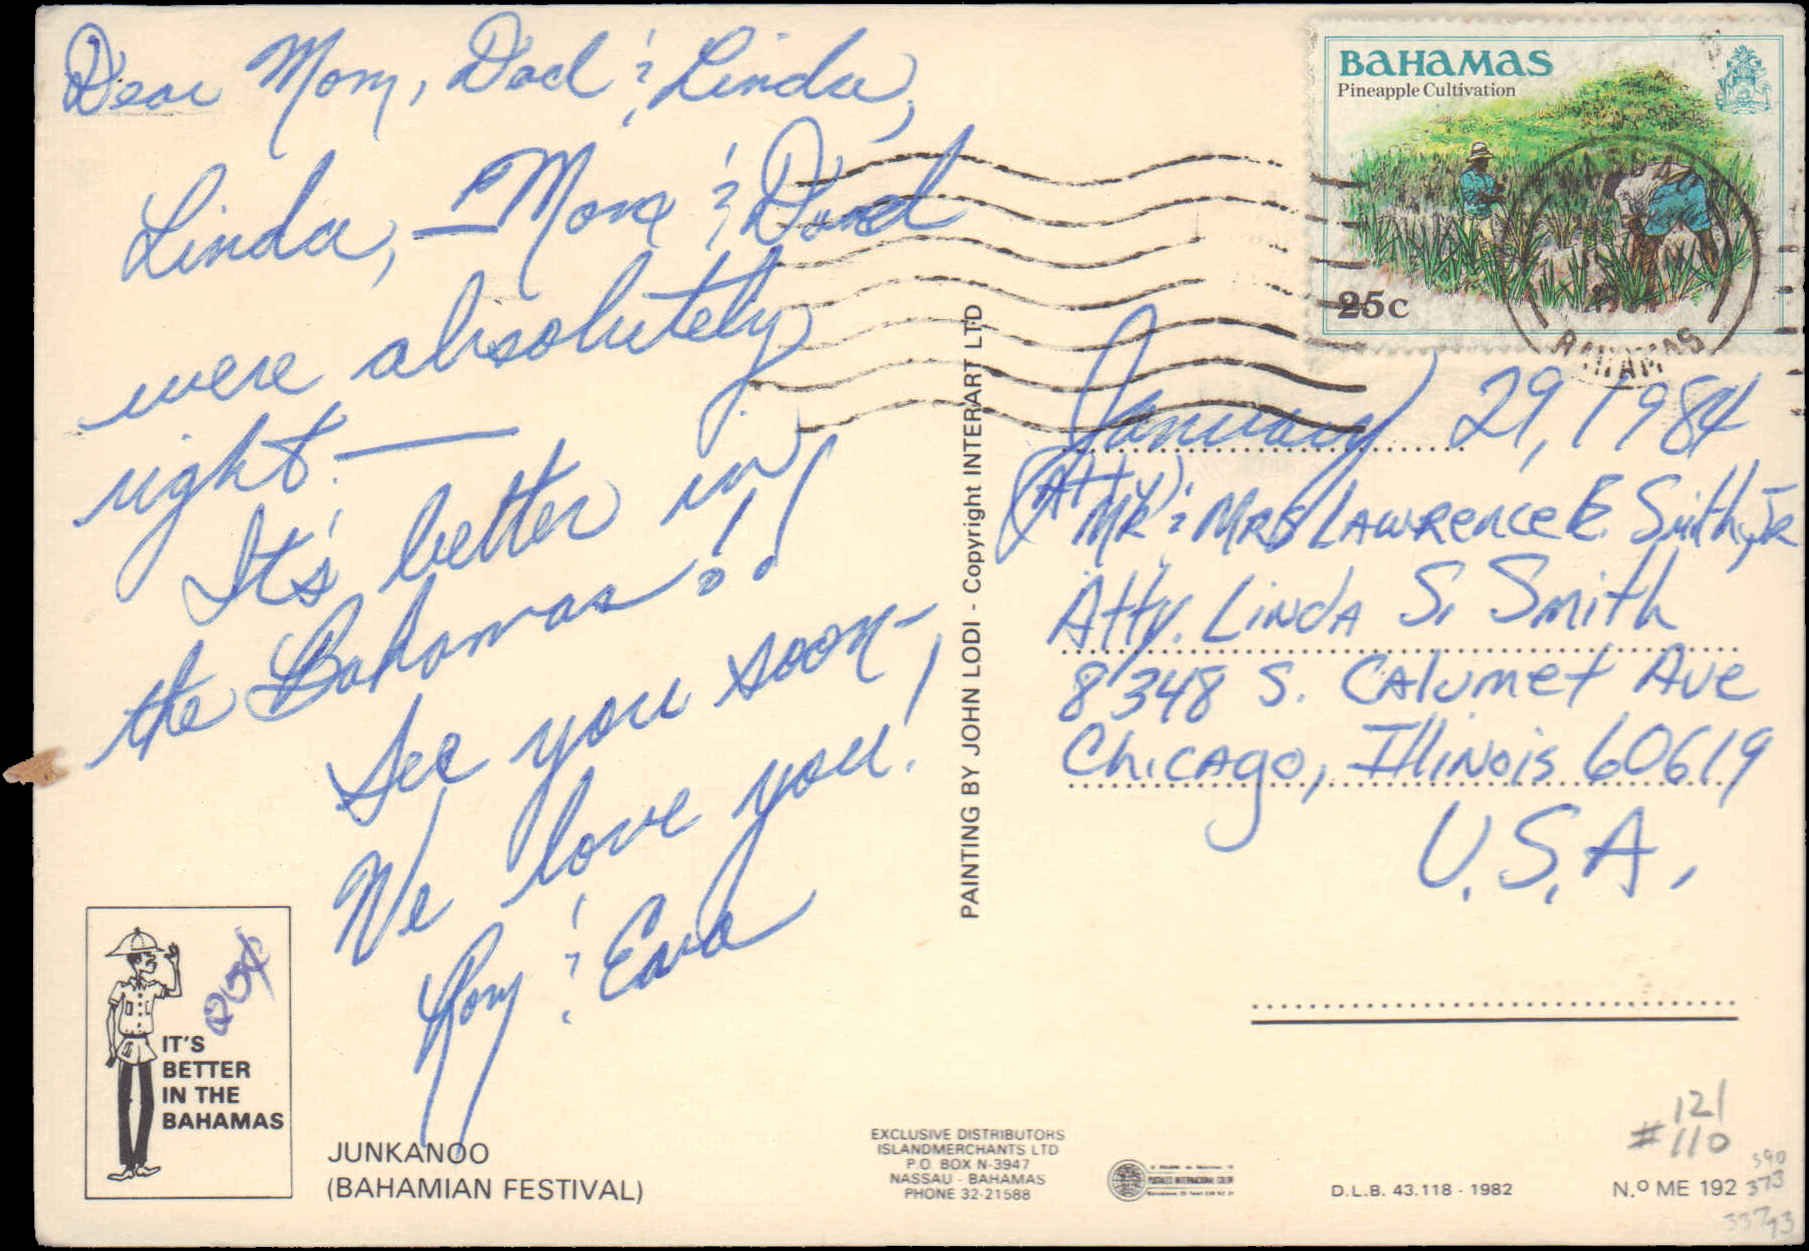 Dear Mom, Dad & Linda,
Linda, — Mom & Dad
were absolutely
right. —
It's better in
the Bahamas!!
See you soon -
We love you!
& Eava
BAHAMAS
Pineapple Cultivation
25c
BAHAMAS
January 29, 1984
(Atty)
MR & MRS LAWRence E. Smith, JR
Atty. LINDA S. Smith
8348 S. CAlumet Ave
ChicAgo, IllINois 60619
U.S.A.
PAINTING BY JOHN LODI - Copyright INTERART LTD
25¢
IT'S
BETTER
IN THE
BAHAMAS
JUNKANOO
(BAHAMIAN FESTIVAL)
EXCLUSIVE DISTRIBUTORS
ISLANDMERCHANTS LTD
P.O. BOX N-3947
NASSAU - BAHAMAS
PHONE 32-21588
D.L.B. 43.118 - 1982
121
#110
N.º ME 192
373